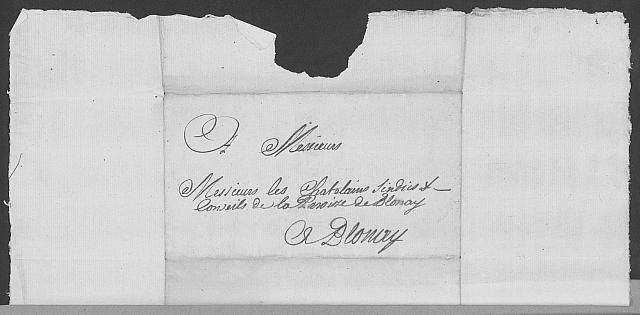 A Messieurs
Messieurs les Chatelains Sindics &
Conseils de la Paroisse de Blonay
A Blonay